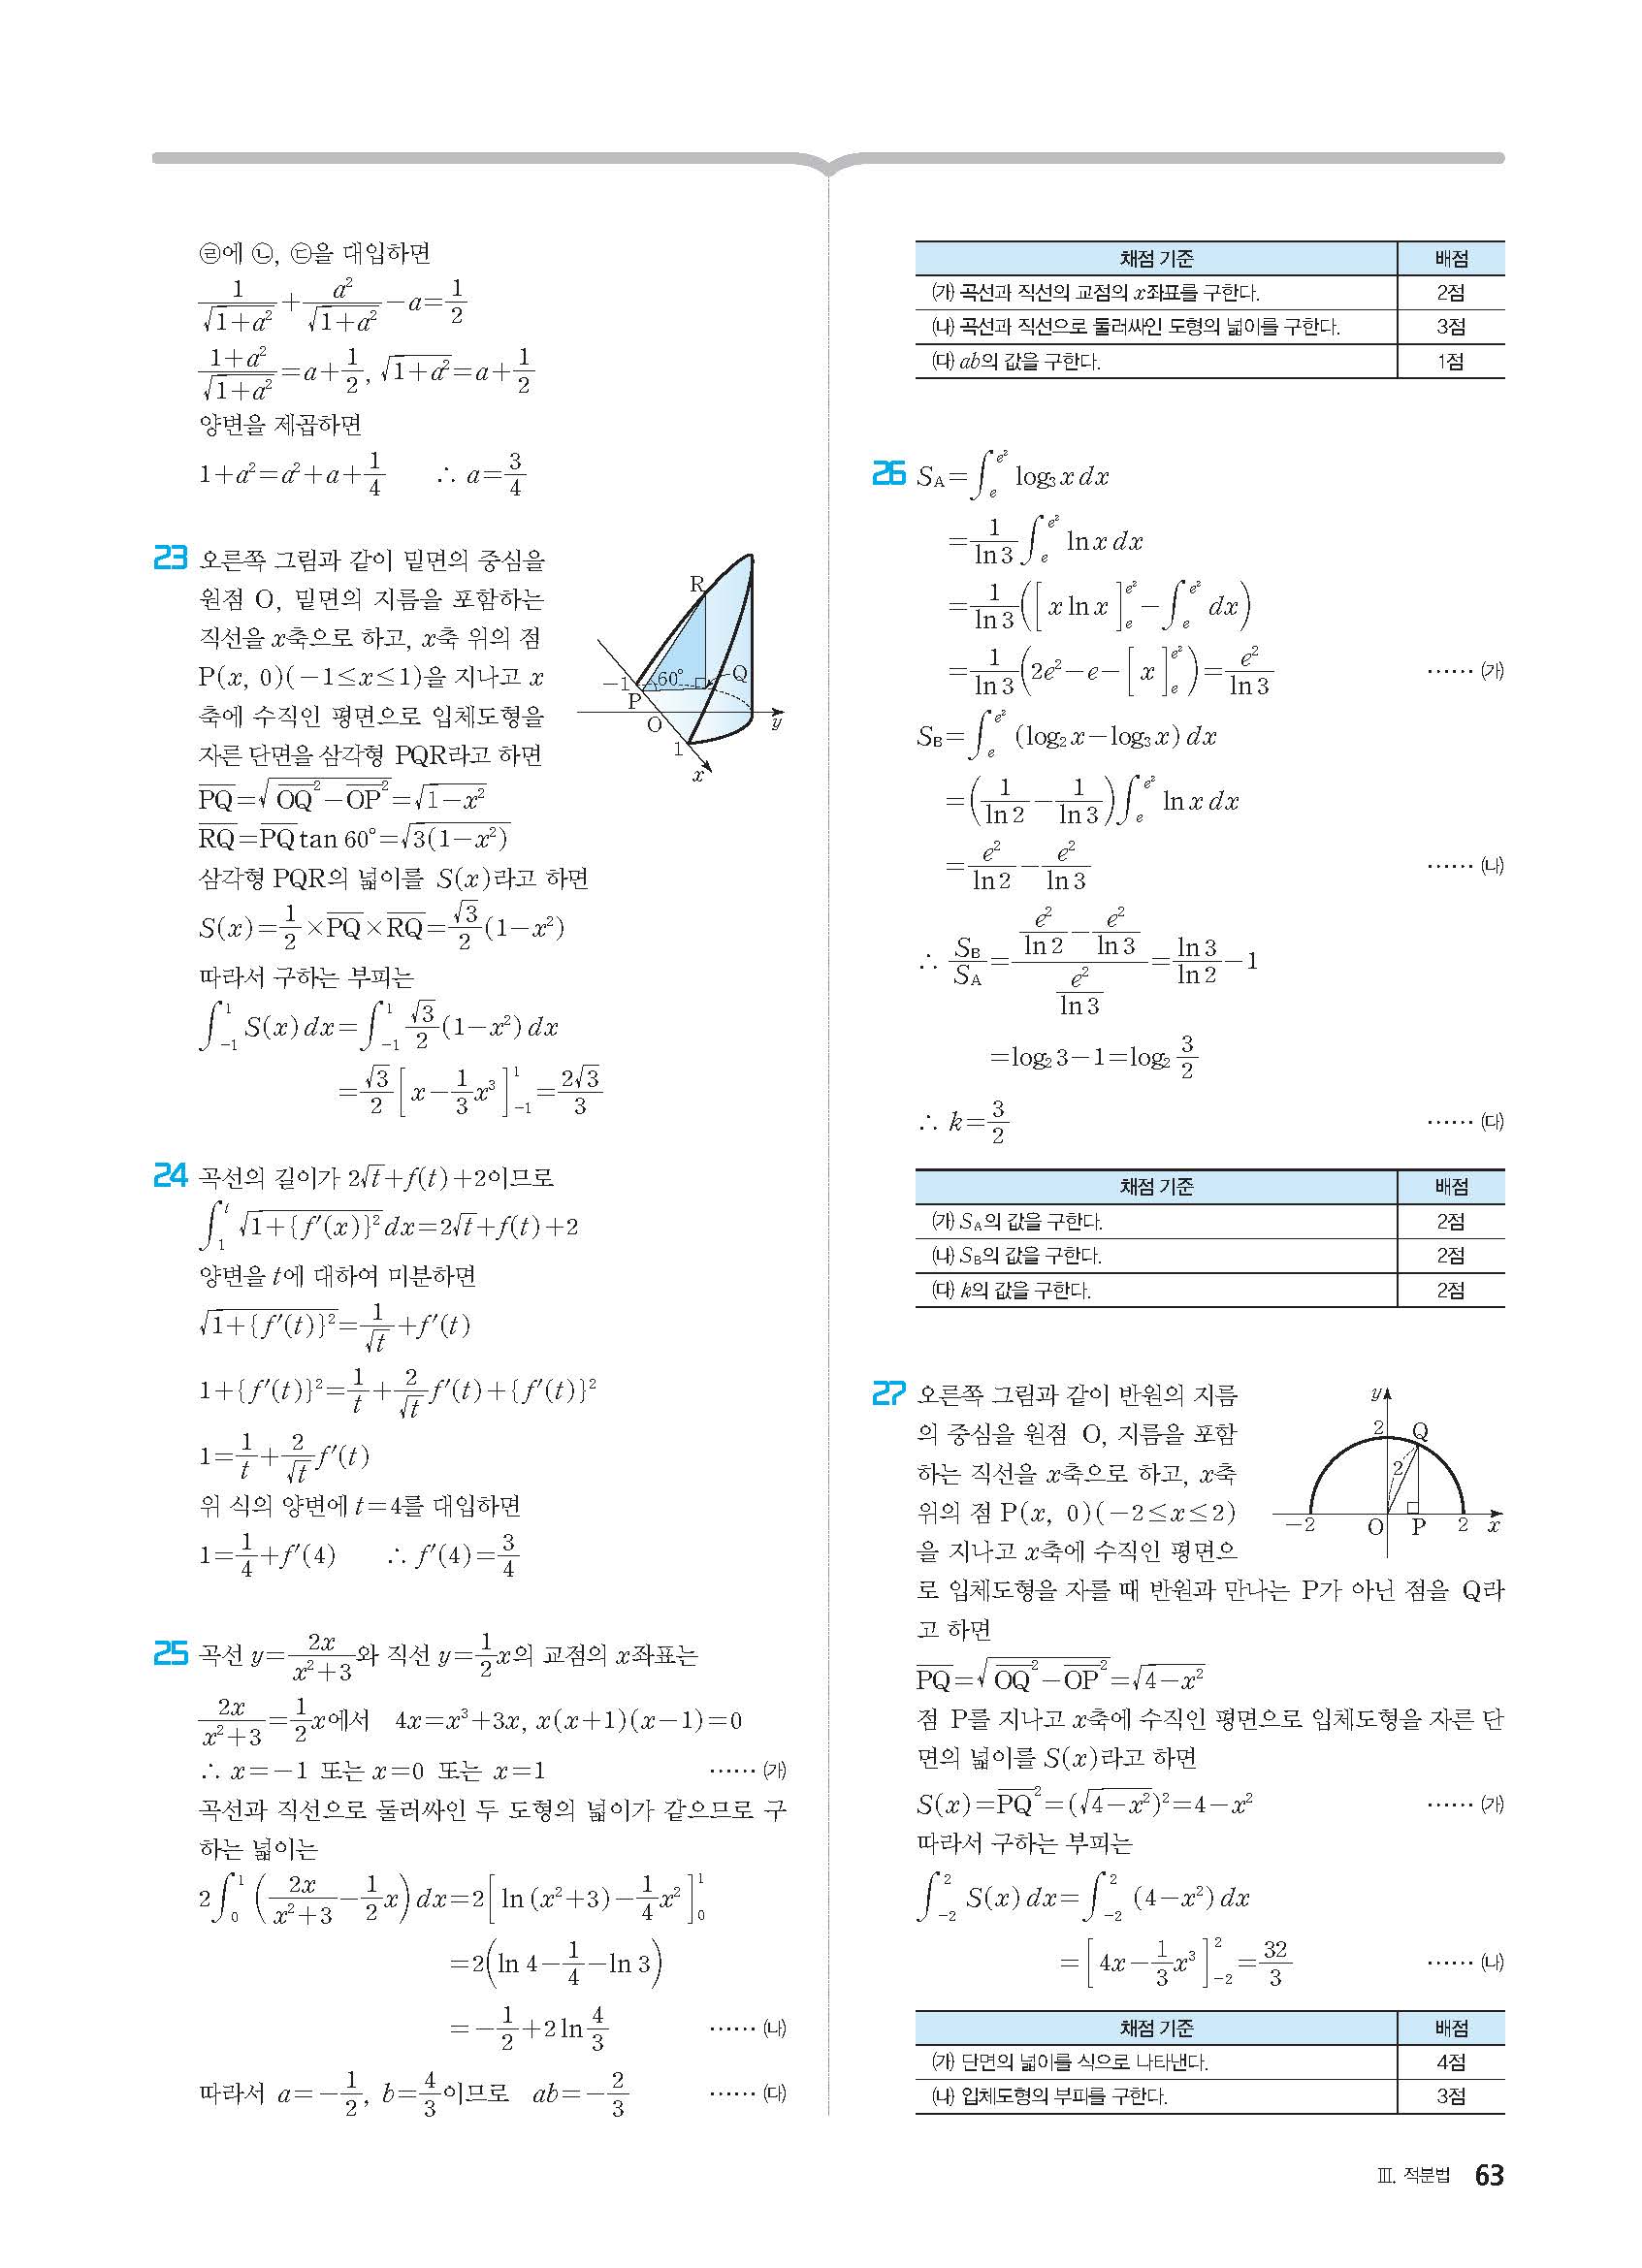 ㉣에 ㉡, ㉢을 대입하면
1/√(1+a²) + a²/√(1+a²) − a = 1/2
(1+a²)/√(1+a²) = a + 1/2, √(1+a²) = a + 1/2
양변을 제곱하면
1+a²=a²+a+1/4 ∴ a=3/4
23 오른쪽 그림과 같이 밑면의 중심을
원점 O, 밑면의 지름을 포함하는
직선을 x축으로 하고, x축 위의 점
P(x, 0)(−1≤x≤1)을 지나고 x
축에 수직인 평면으로 입체도형을
자른 단면을 삼각형 PQR라고 하면
R
60°
Q
−1
P
O
1
x
y
PQ=√(OQ²−OP²)=√(1−x²)
RQ=PQ tan 60°=√(3(1−x²))
삼각형 PQR의 넓이를 S(x)라고 하면
S(x)=1/2×PQ×RQ=√3/2(1−x²)
따라서 구하는 부피는
∫₋₁¹ S(x)dx=∫₋₁¹ √3/2(1−x²)dx
=√3/2[x−1/3x³]₋₁¹=2√3/3
24 곡선의 길이가 2√t+f(t)+2이므로
∫₁ᵗ √(1+{f′(x)}²)dx=2√t+f(t)+2
양변을 t에 대하여 미분하면
√(1+{f′(t)}²)=1/√t+f′(t)
1+{f′(t)}²=1/t+2/√t f′(t)+{f′(t)}²
1=1/t+2/√t f′(t)
위 식의 양변에 t=4를 대입하면
1=1/4+f′(4) ∴ f′(4)=3/4
25 곡선 y=2x/(x²+3)와 직선 y=1/2x의 교점의 x좌표는
2x/(x²+3)=1/2x에서 4x=x³+3x, x(x+1)(x−1)=0
∴ x=−1 또는 x=0 또는 x=1 …… ㈎
곡선과 직선으로 둘러싸인 두 도형의 넓이가 같으므로 구
하는 넓이는
2∫₀¹(2x/(x²+3)−1/2x)dx=2[ln(x²+3)−1/4x²]₀¹
=2(ln 4−1/4−ln 3)
=−1/2+2 ln 4/3 …… ㈏
따라서 a=−1/2, b=4/3이므로 ab=−2/3 …… ㈐
채점 기준 배점
㈎ 곡선과 직선의 교점의 x좌표를 구한다. 2점
㈏ 곡선과 직선으로 둘러싸인 도형의 넓이를 구한다. 3점
㈐ ab의 값을 구한다. 1점
26 S_A=∫ₑ^(e²) log₃x dx
=1/ln 3 ∫ₑ^(e²) ln x dx
=1/ln 3([x ln x]ₑ^(e²)−∫ₑ^(e²) dx)
=1/ln 3(2e²−e−[x]ₑ^(e²))=e²/ln 3 …… ㈎
S_B=∫ₑ^(e²) (log₂x−log₃x)dx
=(1/ln 2−1/ln 3)∫ₑ^(e²) ln x dx
=e²/ln 2−e²/ln 3 …… ㈏
∴ S_B/S_A=(e²/ln 2−e²/ln 3)/(e²/ln 3)=ln 3/ln 2−1
=log₂3−1=log₂ 3/2
∴ k=3/2 …… ㈐
채점 기준 배점
㈎ S_A의 값을 구한다. 2점
㈏ S_B의 값을 구한다. 2점
㈐ k의 값을 구한다. 2점
27 오른쪽 그림과 같이 반원의 지름
의 중심을 원점 O, 지름을 포함
하는 직선을 x축으로 하고, x축
위의 점 P(x, 0)(−2≤x≤2)
을 지나고 x축에 수직인 평면으
로 입체도형을 자를 때 반원과 만나는 P가 아닌 점을 Q라
고 하면
y
2
Q
2
−2
O
P
2
x
PQ=√(OQ²−OP²)=√(4−x²)
점 P를 지나고 x축에 수직인 평면으로 입체도형을 자른 단
면의 넓이를 S(x)라고 하면
S(x)=PQ²=(√(4−x²))²=4−x² …… ㈎
따라서 구하는 부피는
∫₋₂² S(x)dx=∫₋₂² (4−x²)dx
=[4x−1/3x³]₋₂²=32/3 …… ㈏
채점 기준 배점
㈎ 단면의 넓이를 식으로 나타낸다. 4점
㈏ 입체도형의 부피를 구한다. 3점
Ⅲ. 적분법 63